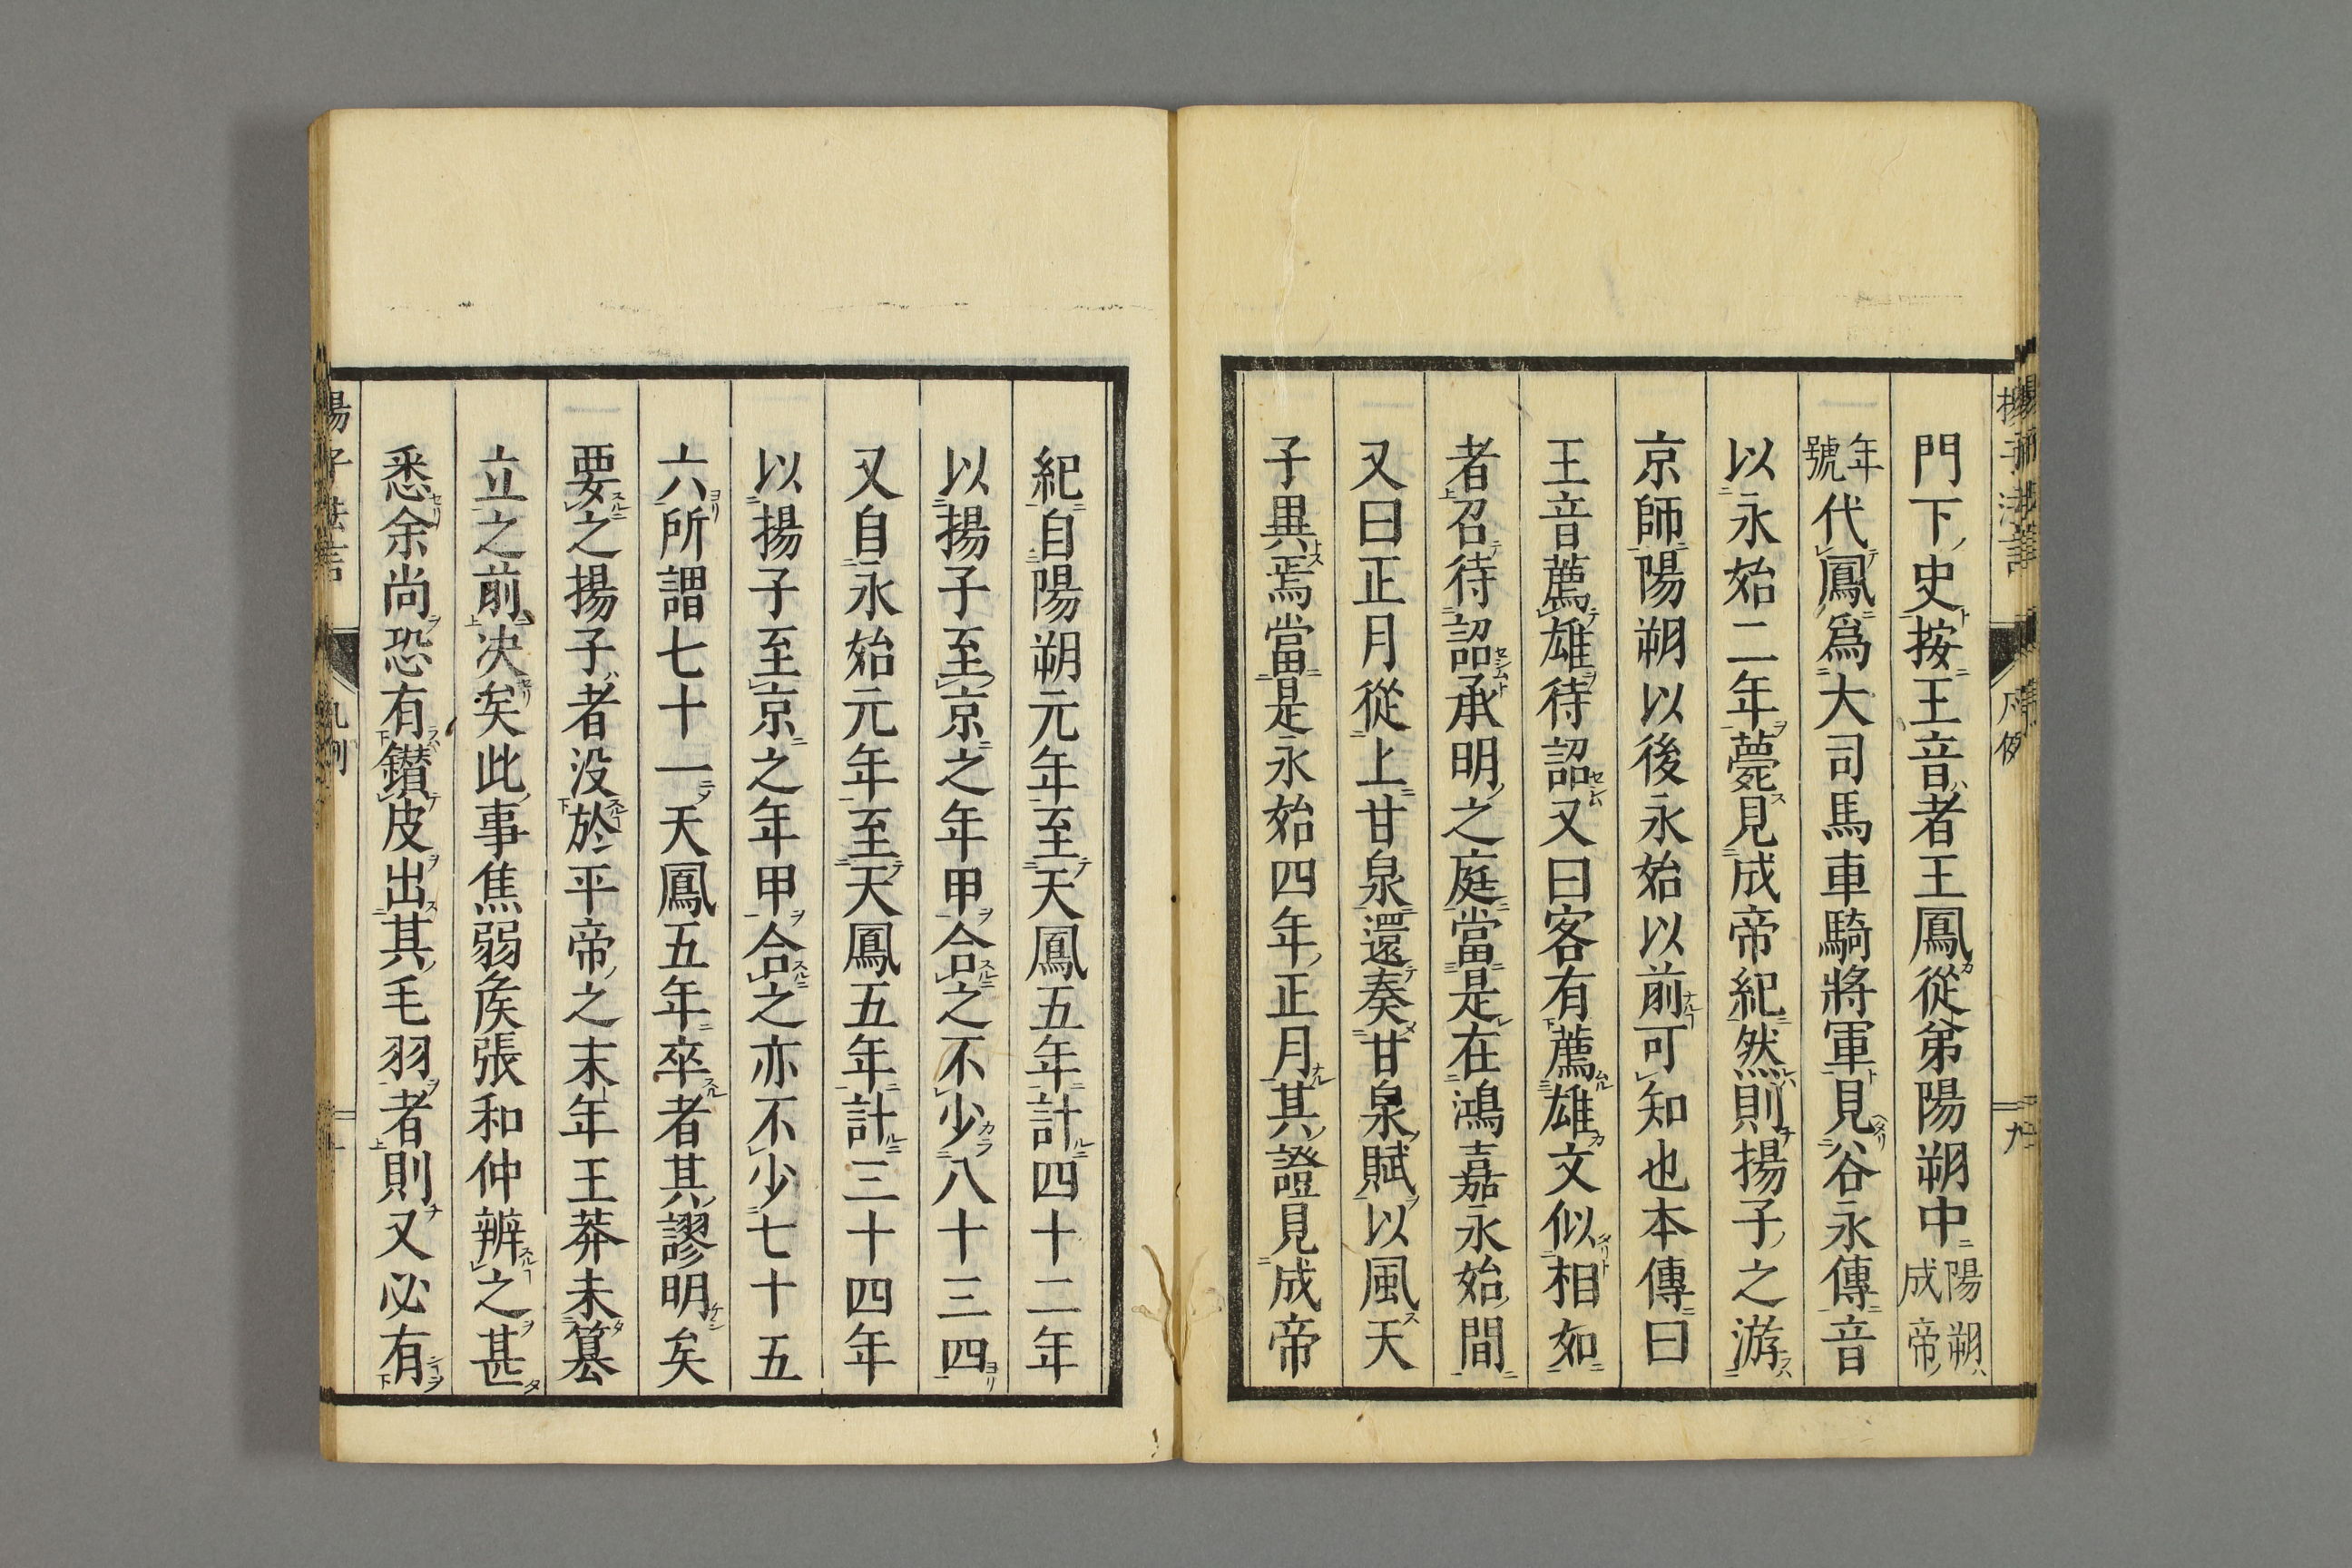 門下史按王音者王鳳從弟陽朔中陽朔成帝
年號代鳳爲大司馬車騎將軍見谷永傳音
以永始二年薨見成帝紀然則揚子之游
京師陽朔以後永始以前可知也本傳曰
王音薦雄待詔又曰客有薦雄文似相如
者召待詔承明之庭當是在鴻嘉永始間
又曰正月從上甘泉還奏甘泉賦以風天
子異焉當是永始四年正月其證見成帝
紀自陽朔元年至天鳳五年計四十二年
以揚子至京之年甲合之不少八十三四
又自永始元年至天鳳五年計三十四年
以揚子至京之年甲合之亦不少七十五
六所謂七十一天鳳五年卒者其謬明矣
要之揚子者没於平帝之末年王莽未簒
立之前决矣此事焦弱矦張和仲辨之甚
悉余尚恐有鑚皮出其毛羽者則又必有